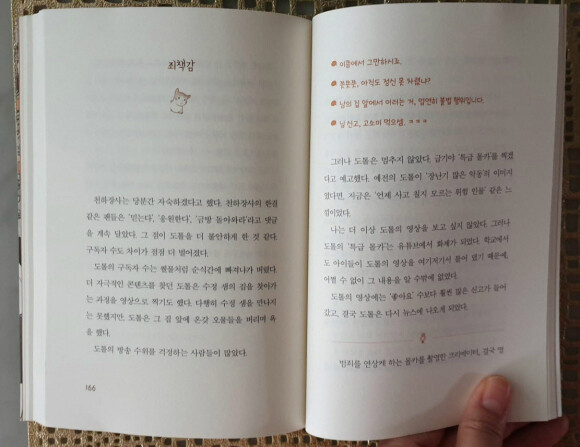 죄책감
천하장사는 당분간 자숙하겠다고 했다. 천하장사의 한결
같은 팬들은 '믿는다', '응원한다', '금방 돌아와라'라고 댓글
을 계속 달았다. 그 점이 도톨을 더 불안하게 한 것 같다.
구독자 수도 차이가 점점 더 벌어졌다.
도톨의 구독자 수는 썰물처럼 순식간에 빠져나가 버렸다.
더 자극적인 콘텐츠를 찾던 도톨은 수정 쌤의 집을 찾아가
는 과정을 영상으로 찍기도 했다. 다행히 수정 쌤을 만나지
는 못했지만, 도톨은 그 집 앞에 온갖 오물들을 버리며 욕
을 했다.
도톨의 방송 수위를 걱정하는 사람들이 많았다.
166
이쯤에서 그만하시죠.
쯧쯧쯧, 아직도 정신 못 차렸냐?
남의 집 앞에서 이러는 거, 엄연히 불법 행위입니다.
님 신고, 고소미 먹으셈. ㅋㅋㅋ
그러나 도톨은 멈추지 않았다. 급기야 '특급 몰카'를 찍겠
다고 예고했다. 예전의 도톨이 '장난기 많은 악동'의 이미지
였다면, 지금은 '언제 사고 칠지 모르는 위험 인물' 같은 느
낌이었다.
나는 더 이상 도톨의 영상을 보고 싶지 않았다. 그러나
도톨의 '특급 몰카'는 유튜브에서 화제가 되었다. 학교에서
도 아이들이 도톨의 영상을 여기저기서 틀어 댔기 때문에,
어쩔 수 없이 그 내용을 알 수밖에 없었다.
도톨의 영상에는 '좋아요' 수보다 훨씬 많은 신고가 들어
갔고, 결국 도톨은 다시 뉴스에 나오게 되었다.
범죄를 연상케 하는 몰카를 촬영한 크리에이터, 결국 법